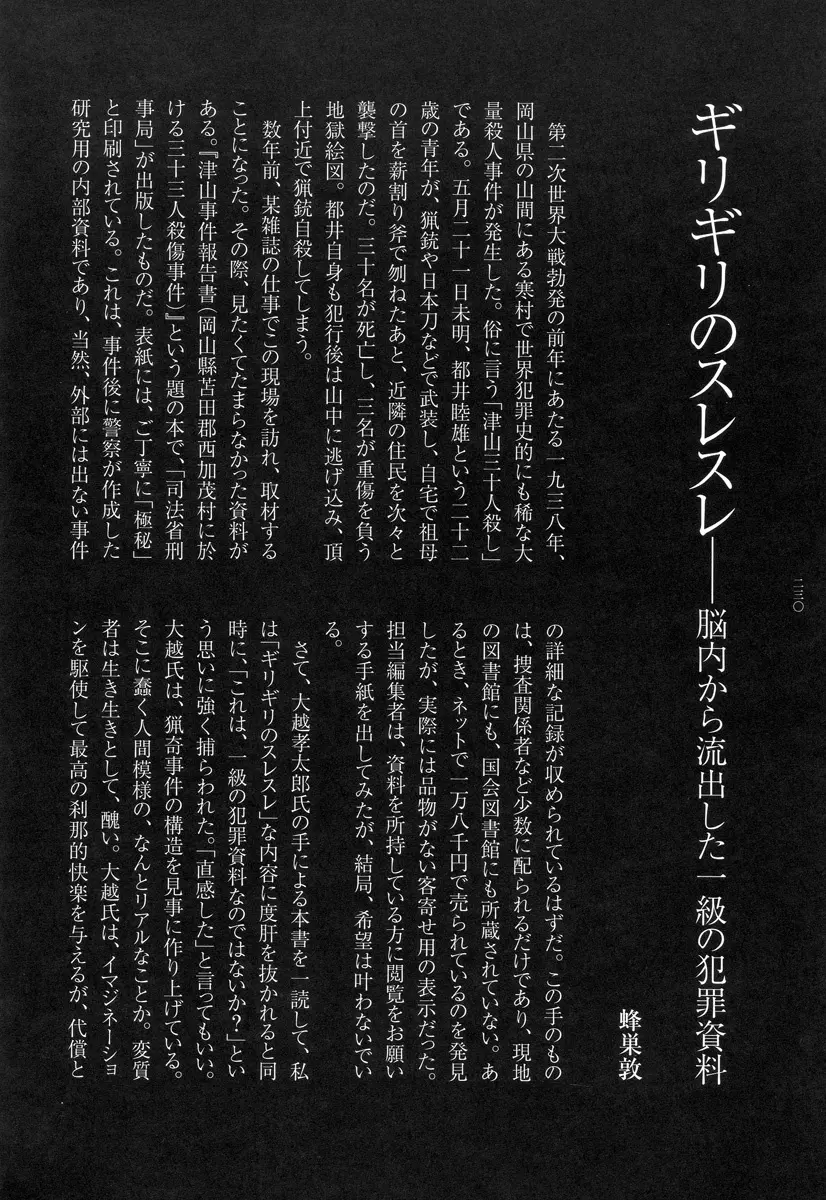 ギリギリのスレスレ──脳内から流出した一級の犯罪資料
蜂巣敦
第二次世界大戦勃発の前年にあたる一九三八年、
岡山県の山間にある寒村で世界犯罪史的にも稀な大
量殺人事件が発生した。俗に言う「津山三十人殺し」
である。五月二十一日未明、都井睦雄という二十二
歳の青年が、猟銃や日本刀などで武装し、自宅で祖母
の首を薪割り斧で刎ねたあと、近隣の住民を次々と
襲撃したのだ。三十名が死亡し、三名が重傷を負う
地獄絵図。都井自身も犯行後は山中に逃げ込み、頂
上付近で猟銃自殺してしまう。
数年前、某雑誌の仕事でこの現場を訪れ、取材する
ことになった。その際、見たくてたまらなかった資料が
ある。『津山事件報告書(岡山縣苫田郡西加茂村に於
ける三十三人殺傷事件)』という題の本で、「司法省刑
事局」が出版したものだ。表紙には、ご丁寧に「極秘」
と印刷されている。これは、事件後に警察が作成した
研究用の内部資料であり、当然、外部には出ない事件
の詳細な記録が収められているはずだ。この手のもの
は、捜査関係者など少数に配られるだけであり、現地
の図書館にも、国会図書館にも所蔵されていない。あ
るとき、ネットで一万八千円で売られているのを発見
したが、実際には品物がない客寄せ用の表示だった。
担当編集者は、資料を所持している方に閲覧をお願い
する手紙を出してみたが、結局、希望は叶わないでい
る。
さて、大越孝太郎氏の手による本書を一読して、私
は「ギリギリのスレスレ」な内容に度肝を抜かれると同
時に、「これは、一級の犯罪資料なのではないか?」とい
う思いに強く捕らわれた。「直感した」と言ってもいい。
大越氏は、猟奇事件の構造を見事に作り上げている。
そこに蠢く人間模様の、なんとリアルなことか。変質
者は生き生きとして、醜い。大越氏は、イマジネーショ
ンを駆使して最高の刹那的快楽を与えるが、代償と
二三〇